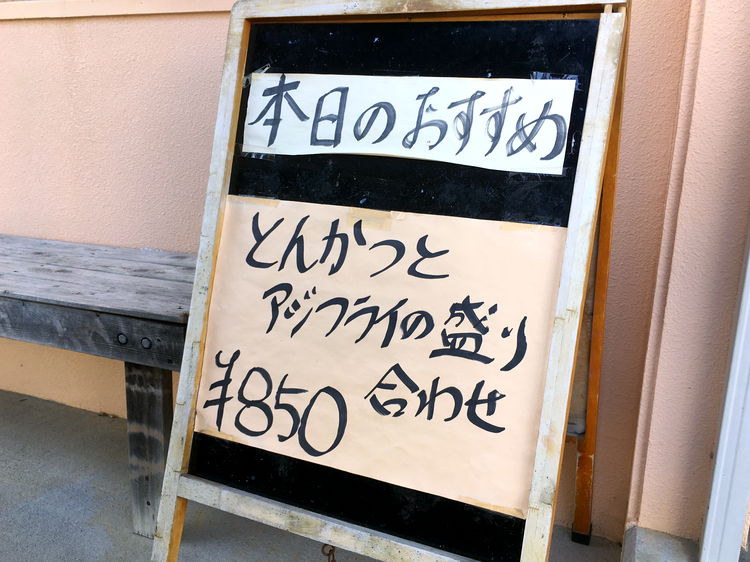 本日のおすすめ
とんかつと
アジフライの盛り
合わせ
¥850